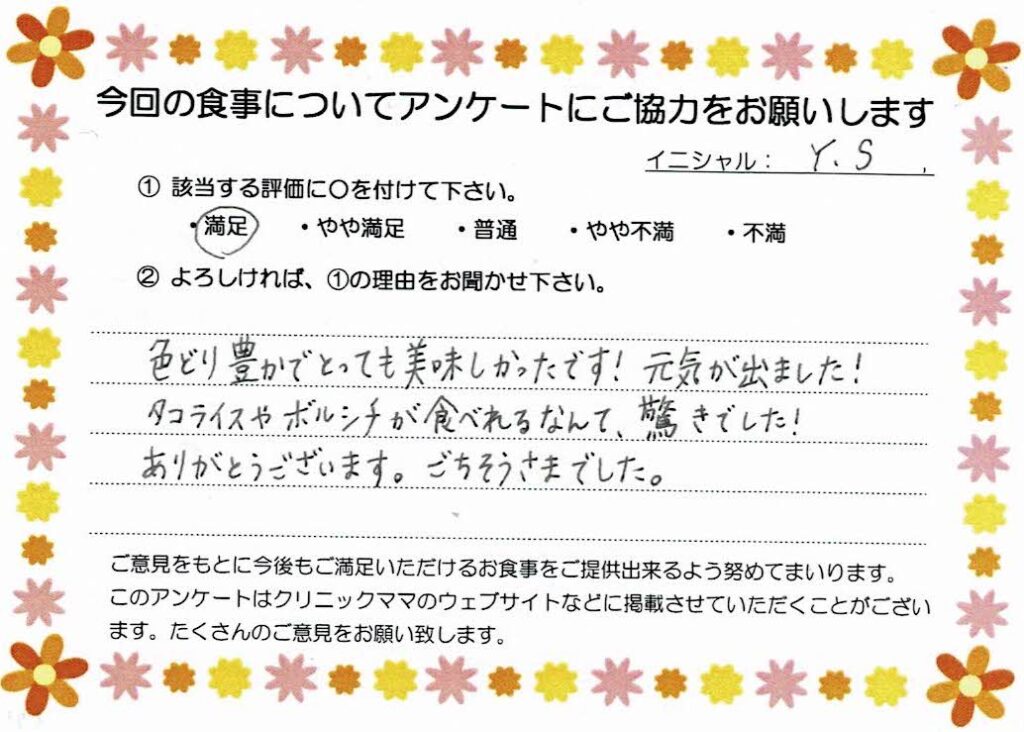 今回の食事についてアンケートにご協力をお願いします
イニシャル： Y.S
① 該当する評価に○を付けて下さい。
・満足 ・やや満足 ・普通 ・やや不満 ・不満
② よろしければ、①の理由をお聞かせ下さい。
色どり豊かでとっても美味しかったです！元気が出ました！
タコライスやボルシチが食べれるなんて、驚きでした！
ありがとうございます。ごちそうさまでした。
ご意見をもとに今後もご満足いただけるお食事をご提供出来るよう努めてまいります。
このアンケートはクリニックママのウェブサイトなどに掲載させていただくことがござい
ます。たくさんのご意見をお願い致します。